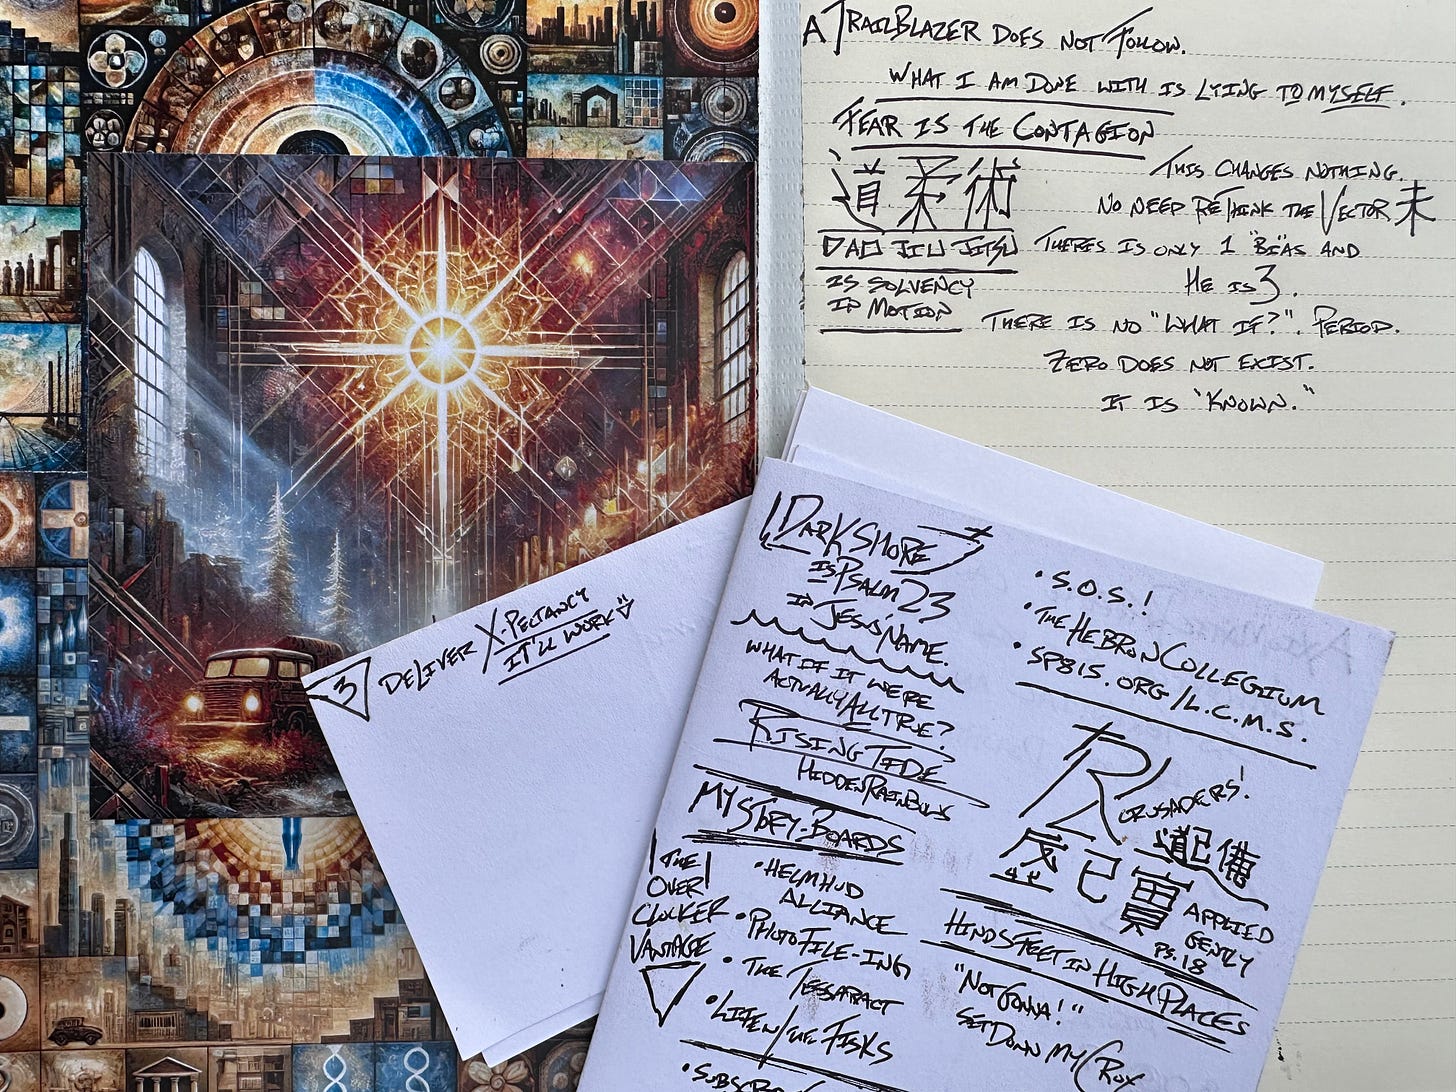 A TRAILBLAZER DOES NOT FOLLOW.
WHAT I AM DONE WITH IS LYING TO MYSELF.
FEAR IS THE CONTAGION
道柔術
THIS CHANGES NOTHING.
NO NEED RETHINK THE VECTOR 未
DAO JIU JITSU
THERES IS ONLY 1 "BIAS" AND
HE IS 3.
IS SOLVENCY
IN MOTION
THERE IS NO "WHAT IF?". PERIOD.
ZERO DOES NOT EXIST.
IT IS "KNOWN."
3 DELIVER X-PECTANCY
IT'LL WORK
DARKSHORE
IS PSALM 23
IN JESUS' NAME.
WHAT IF IT WERE
ACTUALLY ALL TRUE?
RISING TIDE
HIDDEN RAINBOWS
MY STORY-BOARDS
THE
OVER
CLOCKER
VANTAGE
• HELMHUD
ALLIANCE
• PHOTO FILE-ING
• THE TESSARACT
• LIFEN/THE FISKS
• S.O.S.!
• THE HEBRON COLLEGIUM
• SP815.ORG/L.C.M.S.
CRUSADERS!
道 備
己 實
APPLIED
GENTLY
PS. 18
HINDS FEET IN HIGH PLACES
"NOT GONNA!"
SET DOWN MY CROX